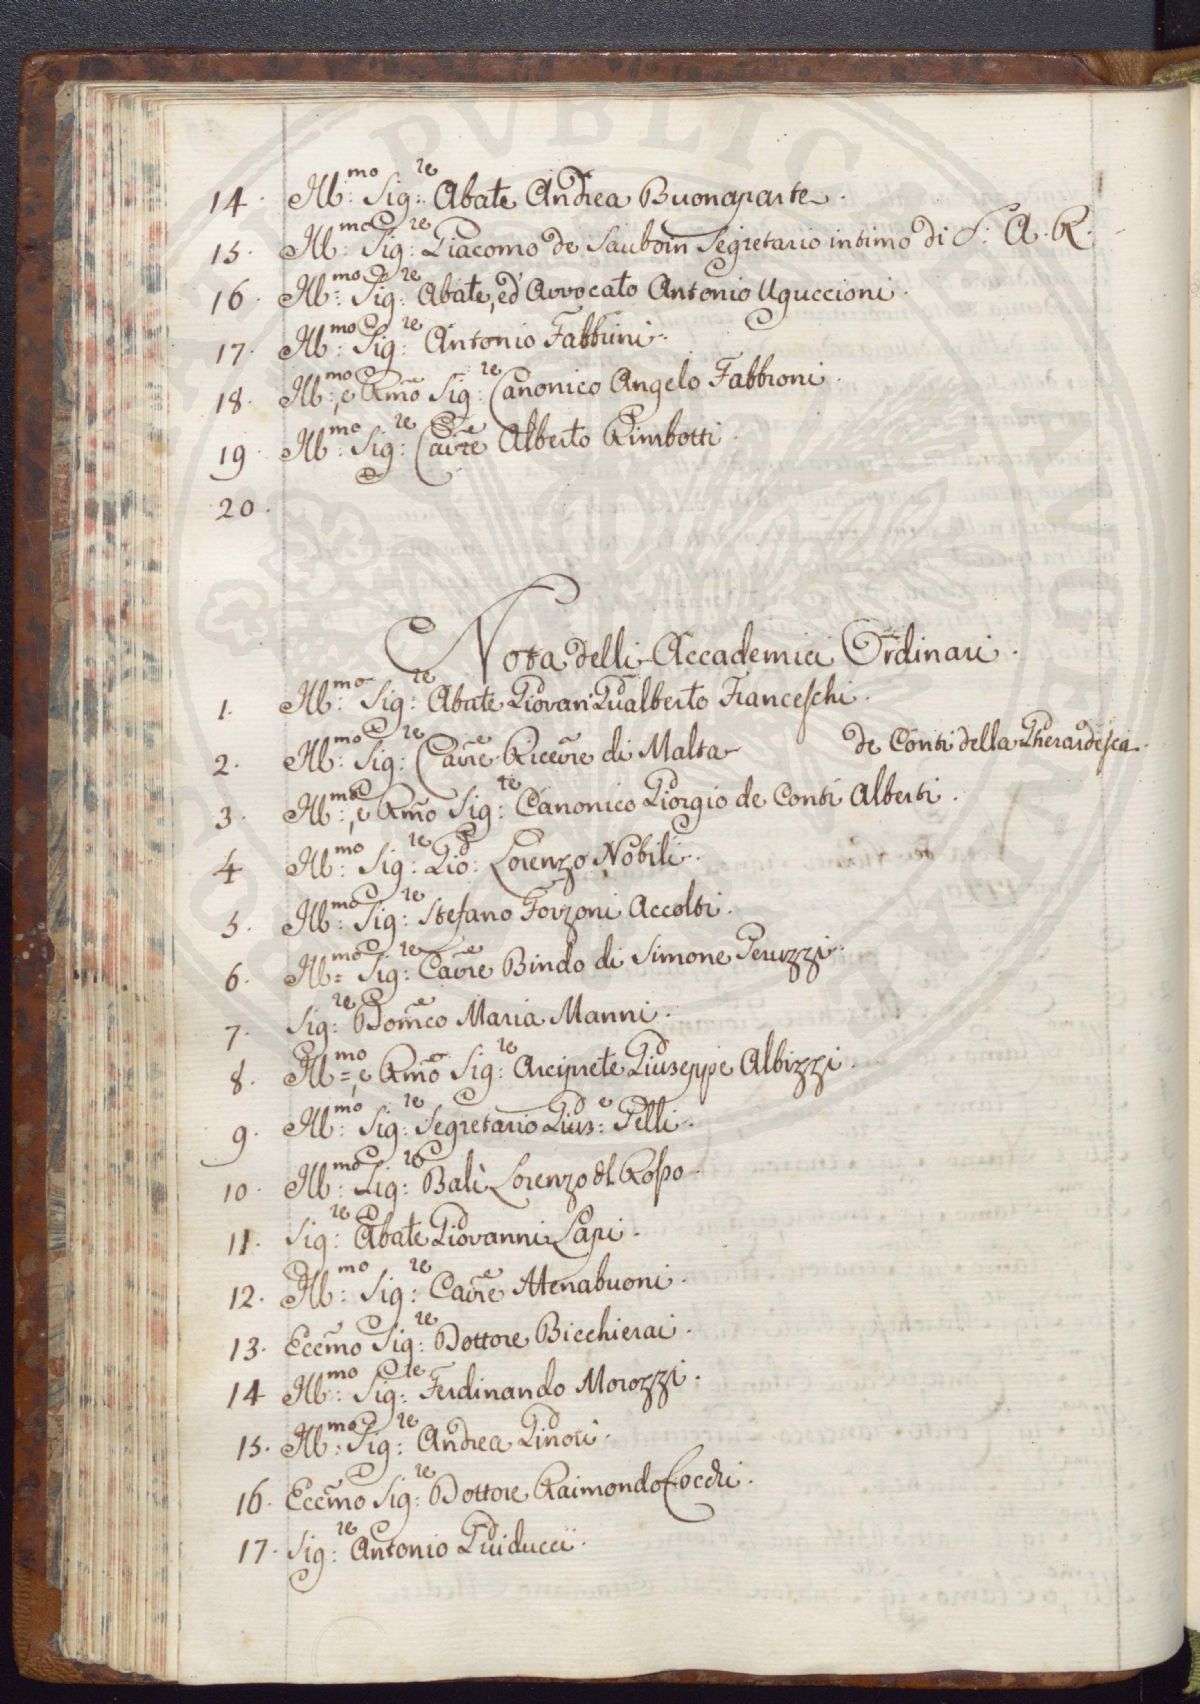 14. Ill:mo Sig:re Abate Andrea Buonaparte.
15. Ill:mo Sig:re Giacomo de Sauboin Segretario intimo di S: A. R.
16. Ill:mo Sig:re Abate, ed Avvocato Antonio Uguccioni.
17. Ill:mo Sig:re Antonio Fabbrini.
18. Ill:mo, e Rmo Sig:re Canonico Angelo Fabbroni.
19. Ill:mo Sig:re Cavre Alberto Rimbotti.
20.
Nota delli Accademici Ordinari.
1. Ill:mo Sig:re Abate Giovan Gualberto Franceschi.
2. Ill:mo Sig:re Cavre Ricevre di Malta de Conti della Gherardesca.
3. Ill:mo, e Rmo Sig:re Canonico Giorgio de Conti Alberti.
4 Ill:mo Sig:re Gio: Lorenzo Nobili.
5. Ill:mo Sig:re Stefano Forzoni Accolti.
6. Ill:mo Sig:re Cavre Bindo di Simone Peruzzi.
7. Sig:re Domco Maria Manni.
8. Ill:mo, e Rmo Sig:re Arciprete Giuseppe Albizzi.
9. Ill:mo Sig:re Segretario Gius:e Pelli.
10. Ill:mo Sig:re Balì Lorenzo dl Rosso
11. Sig:re Abate Giovanni Lapi.
12. Ill:mo Sig:re Cavre Attenabuoni.
13. Eccmo Sig:re Dottore Bicchierai.
14 Ill:mo Sig:re Ferdinando Morozzi.
15. Ill:mo Sig:re Andrea Ginori.
16. Eccmo Sig:re Dottore Raimondo Cocchi.
17. Sig:re Antonio Guiducci.